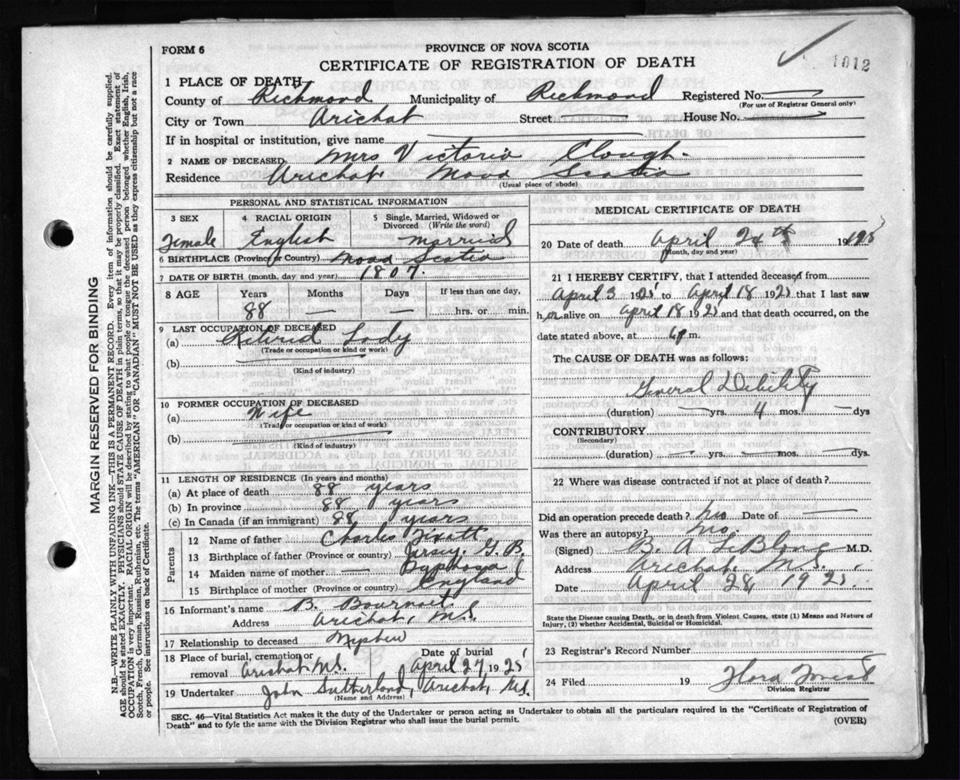 FORM 6
PROVINCE OF NOVA SCOTIA
CERTIFICATE OF REGISTRATION OF DEATH
1012
1 PLACE OF DEATH
County of Richmond Municipality of Richmond Registered No.
(For use of Registrar General only)
City or Town Arichat Street House No.
If in hospital or institution, give name
2 NAME OF DECEASED Mrs Victoria Clough
Residence Arichat Nova Scotia
(Usual place of abode)
PERSONAL AND STATISTICAL INFORMATION
3 SEX 4 RACIAL ORIGIN 5 Single, Married, Widowed or Divorced (Write the word)
Female English married
6 BIRTHPLACE (Province or Country) Nova Scotia
7 DATE OF BIRTH (month, day and year) 1807.
8 AGE Years Months Days If less than one day,
88 — — ....hrs. or .... min.
9 LAST OCCUPATION OF DECEASED
(a) Retired Lady
(Trade or occupation or kind or work)
(b)
(Kind of industry)
10 FORMER OCCUPATION OF DECEASED
(a) Wife
(Trade or occupation or kind or work)
(b)
(Kind of industry)
11 LENGTH OF RESIDENCE (In years and months)
(a) At place of death 88 years
(b) In province 88 years
(c) In Canada (if an immigrant) 88 years
Parents
12 Name of father Charles
13 Birthplace of father (Province or country) Jersey, G.B.
14 Maiden name of mother
15 Birthplace of mother (Province or country) England
16 Informant's name B.
Address Arichat, N.S.
17 Relationship to deceased Nephew
18 Place of burial, cremation or removal Arichat N.S. Date of burial April 27 1925
19 Undertaker John Sutherland, Arichat, N.S.
(Name and Address)
MEDICAL CERTIFICATE OF DEATH
20 Date of death April 24th 1925
(Month, day and year)
21 I HEREBY CERTIFY, that I attended deceased from
April 3 1925 to April 18 1925 that I last saw
her alive on April 18 1925 and that death occurred, on
date stated above, at m.
The CAUSE OF DEATH was as follows:
General Debility
(duration) — yrs. 4 mos. — dys
CONTRIBUTORY
(Secondary)
(duration) — yrs. — mos. — dys.
22 Where was disease contracted if not at place of death?
Did an operation precede death? no Date of —
Was there an autopsy? no.
(Signed) B. A. LeBlanc M.D.
Address Arichat, N.S.
Date April 28, 1925.
State the Disease causing Death, or in death from Violent Causes, state (1) Means and Nature of Injury, (2) whether Accidental, Suicidal or Homicidal.
23 Registrar's Record Number
24 Filed 19 Flora
Division Registrar
SEC. 46—Vital Statistics Act makes it the duty of the Undertaker or person acting as Undertaker to obtain all the particulars required in the "Certificate of Registration of
Death" and to fyle the same with the Division Registrar who shall issue the burial permit.
(OVER)
MARGIN RESERVED FOR BINDING
N.B.—WRITE PLAINLY WITH UNFADING INK—THIS IS A PERMANENT RECORD. Every item of information should be carefully supplied.
AGE should be stated EXACTLY. PHYSICIANS should STATE CAUSE OF DEATH in plain terms, so that it may be properly classified. Exact statement of
OCCUPATION is very important. RACIAL ORIGIN will be described by stating to what people or tongue the deceased person belonged whether English, Irish,
Scotch, French, German, Russian, Ruthenian, etc. The terms "AMERICAN" OR "CANADIAN" MUST NOT BE USED as they express citizenship but not a race
or people. See instructions on back of Certificate.